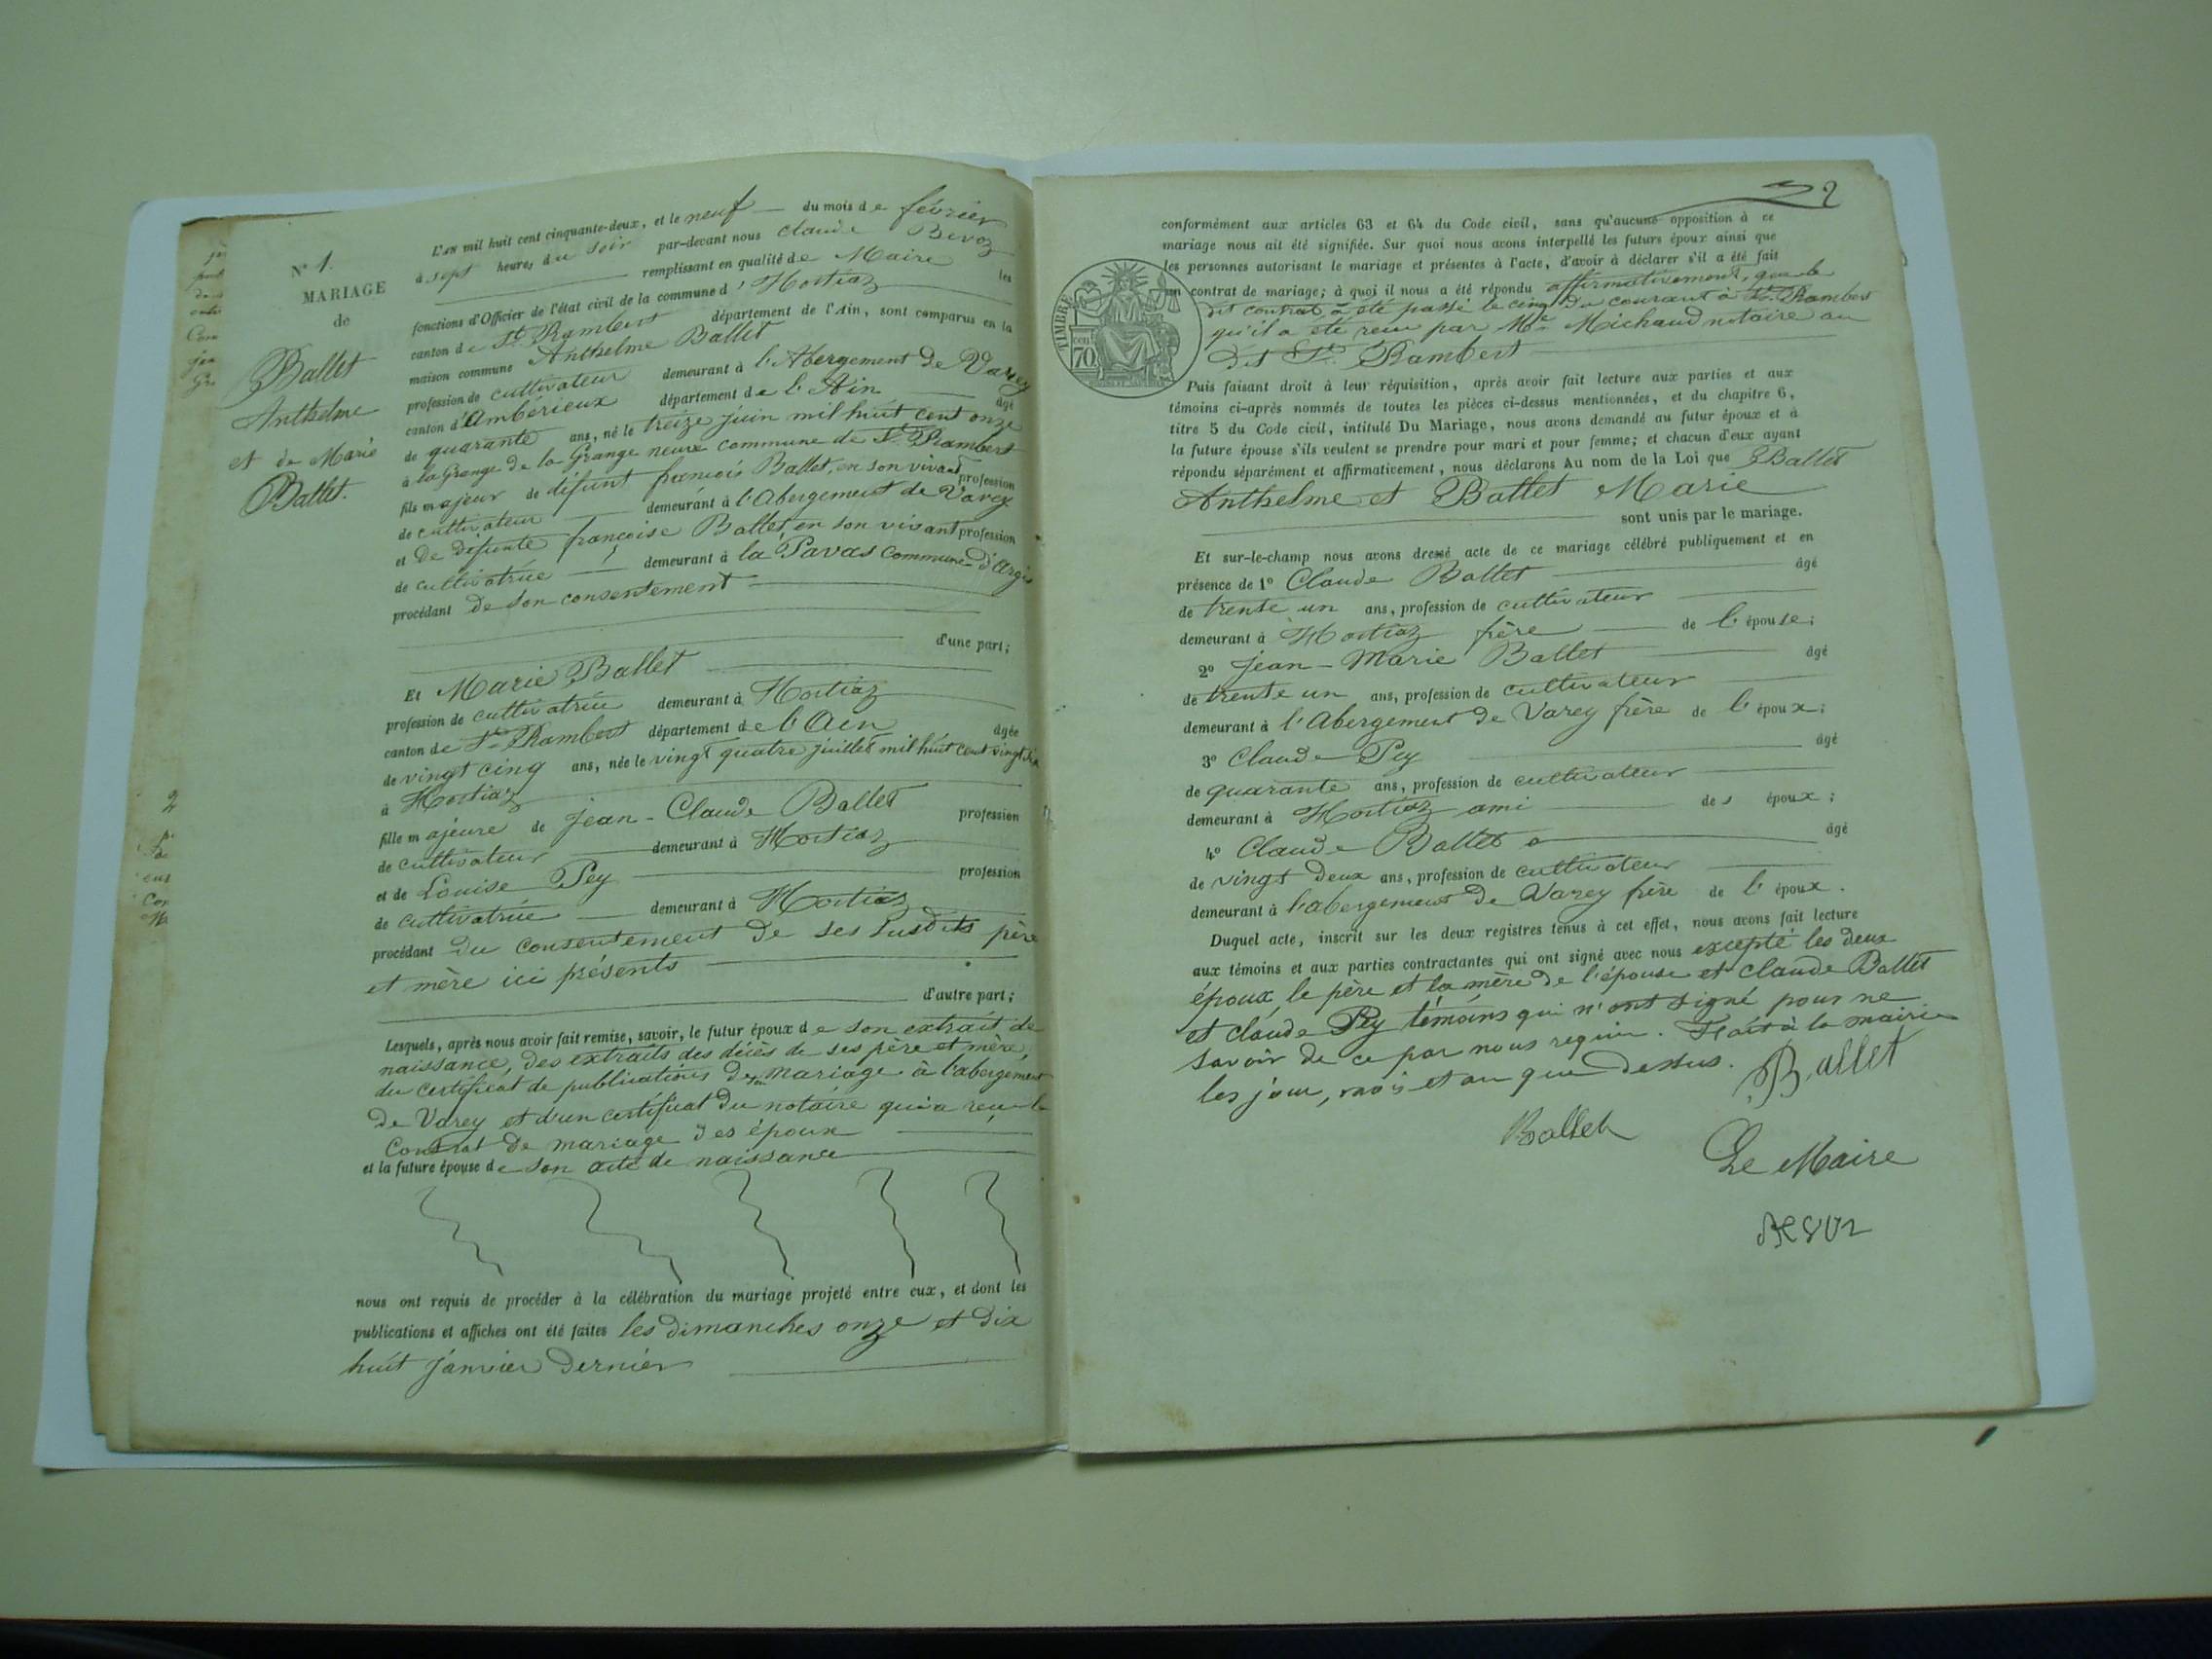 N° 1.
MARIAGE
de
Ballet
Anthelme
et de Marie
Ballet.
L'an mil huit cent cinquante-deux, et le neuf du mois de février
à sept heures du soir par-devant nous Claude Bevoz
remplissant en qualité de Maire les
fonctions d'Officier de l'état civil de la commune d'Hostiaz
canton de St. Rambert département de l'Ain, sont comparus en la
maison commune Anthelme Ballet
profession de cultivateur demeurant à l'Abergement de Varey
canton d'Ambérieux département de l'Ain âgé
de quarante ans, né le treize juin mil huit cent onze
à la Grange de la Grange neuve commune de St. Rambert
fils majeur de défunt françois Ballet, en son vivant profession
de cultivateur demeurant à l'Abergement de Varey
et De défunte françoise Ballet, en son vivant profession
de cultivatrice demeurant à la Pavas commune d'Argis
procédant de son consentement
d'une part;
Et Marie Ballet
profession de cultivatrice demeurant à Hostiaz
canton de St. Rambert département de l'Ain âgée
de vingt cinq ans, née le vingt quatre juillet mil huit cent vingt six
à Hostiaz
fille majeure de Jean-Claude Ballet profession
de cultivateur demeurant à Hostiaz
et de Louise Pey profession
de cultivatrice demeurant à Hostiaz
procédant du consentement de ses susdits père
et mère ici présents
d'autre part;
Lesquels, après nous avoir fait remise, savoir, le futur époux de son extrait de
naissance, des extraits des décès de ses père et mère,
du certificat de publications de son mariage à l'abergement
de Varey et d'un certificat du notaire qui a reçu le
Contrat de mariage des époux
et la future épouse de son acte de naissance
nous ont requis de procéder à la célébration du mariage projeté entre eux, et dont les
publications et affiches ont été faites les dimanches onze et dix
huit janvier dernier
2
conformément aux articles 63 et 64 du Code civil, sans qu'aucune opposition à ce
mariage nous ait été signifiée. Sur quoi nous avons interpellé les futurs époux ainsi que
les personnes autorisant le mariage et présentes à l'acte, d'avoir à déclarer s'il a été fait
un contrat de mariage; à quoi il nous a été répondu affirmativement, que le
dit contrat a été passé le cinq du courant à St. Rambert
qu'il a été reçu par Me. Michaud notaire au
dit St. Rambert
TIMBRE
70
Puis faisant droit à leur réquisition, après avoir fait lecture aux parties et aux
témoins ci-après nommés de toutes les pièces ci-dessus mentionnées, et du chapitre 6,
titre 5 du Code civil, intitulé Du Mariage, nous avons demandé au futur époux et à
la future épouse s'ils veulent se prendre pour mari et pour femme; et chacun d'eux ayant
répondu séparément et affirmativement, nous déclarons Au nom de la Loi que Ballet
Anthelme et Ballet Marie
sont unis par le mariage.
Et sur-le-champ nous avons dressé acte de ce mariage célébré publiquement et en
présence de 1° Claude Ballet âgé
de trente un ans, profession de cultivateur
demeurant à Hostiaz frère de l'épouse;
2° Jean-Marie Ballet âgé
de trente un ans, profession de cultivateur
demeurant à l'Abergement de Varey frère de l'époux;
3° Claude Pey âgé
de quarante ans, profession de cultivateur
demeurant à Hostiaz ami des époux;
4° Claude Ballet âgé
de vingt deux ans, profession de cultivateur
demeurant à l'abergement de Varey frère de l'époux.
Duquel acte, inscrit sur les deux registres tenus à cet effet, nous avons fait lecture
aux témoins et aux parties contractantes qui ont signé avec nous excepté les deux
époux, le père et la mère de l'épouse et Claude Ballet
et Claude Pey témoins qui n'ont signé pour ne
savoir de ce par nous requis. Fait à la mairie
les jour, mois et an que dessus.
Ballet
Ballet
Le Maire